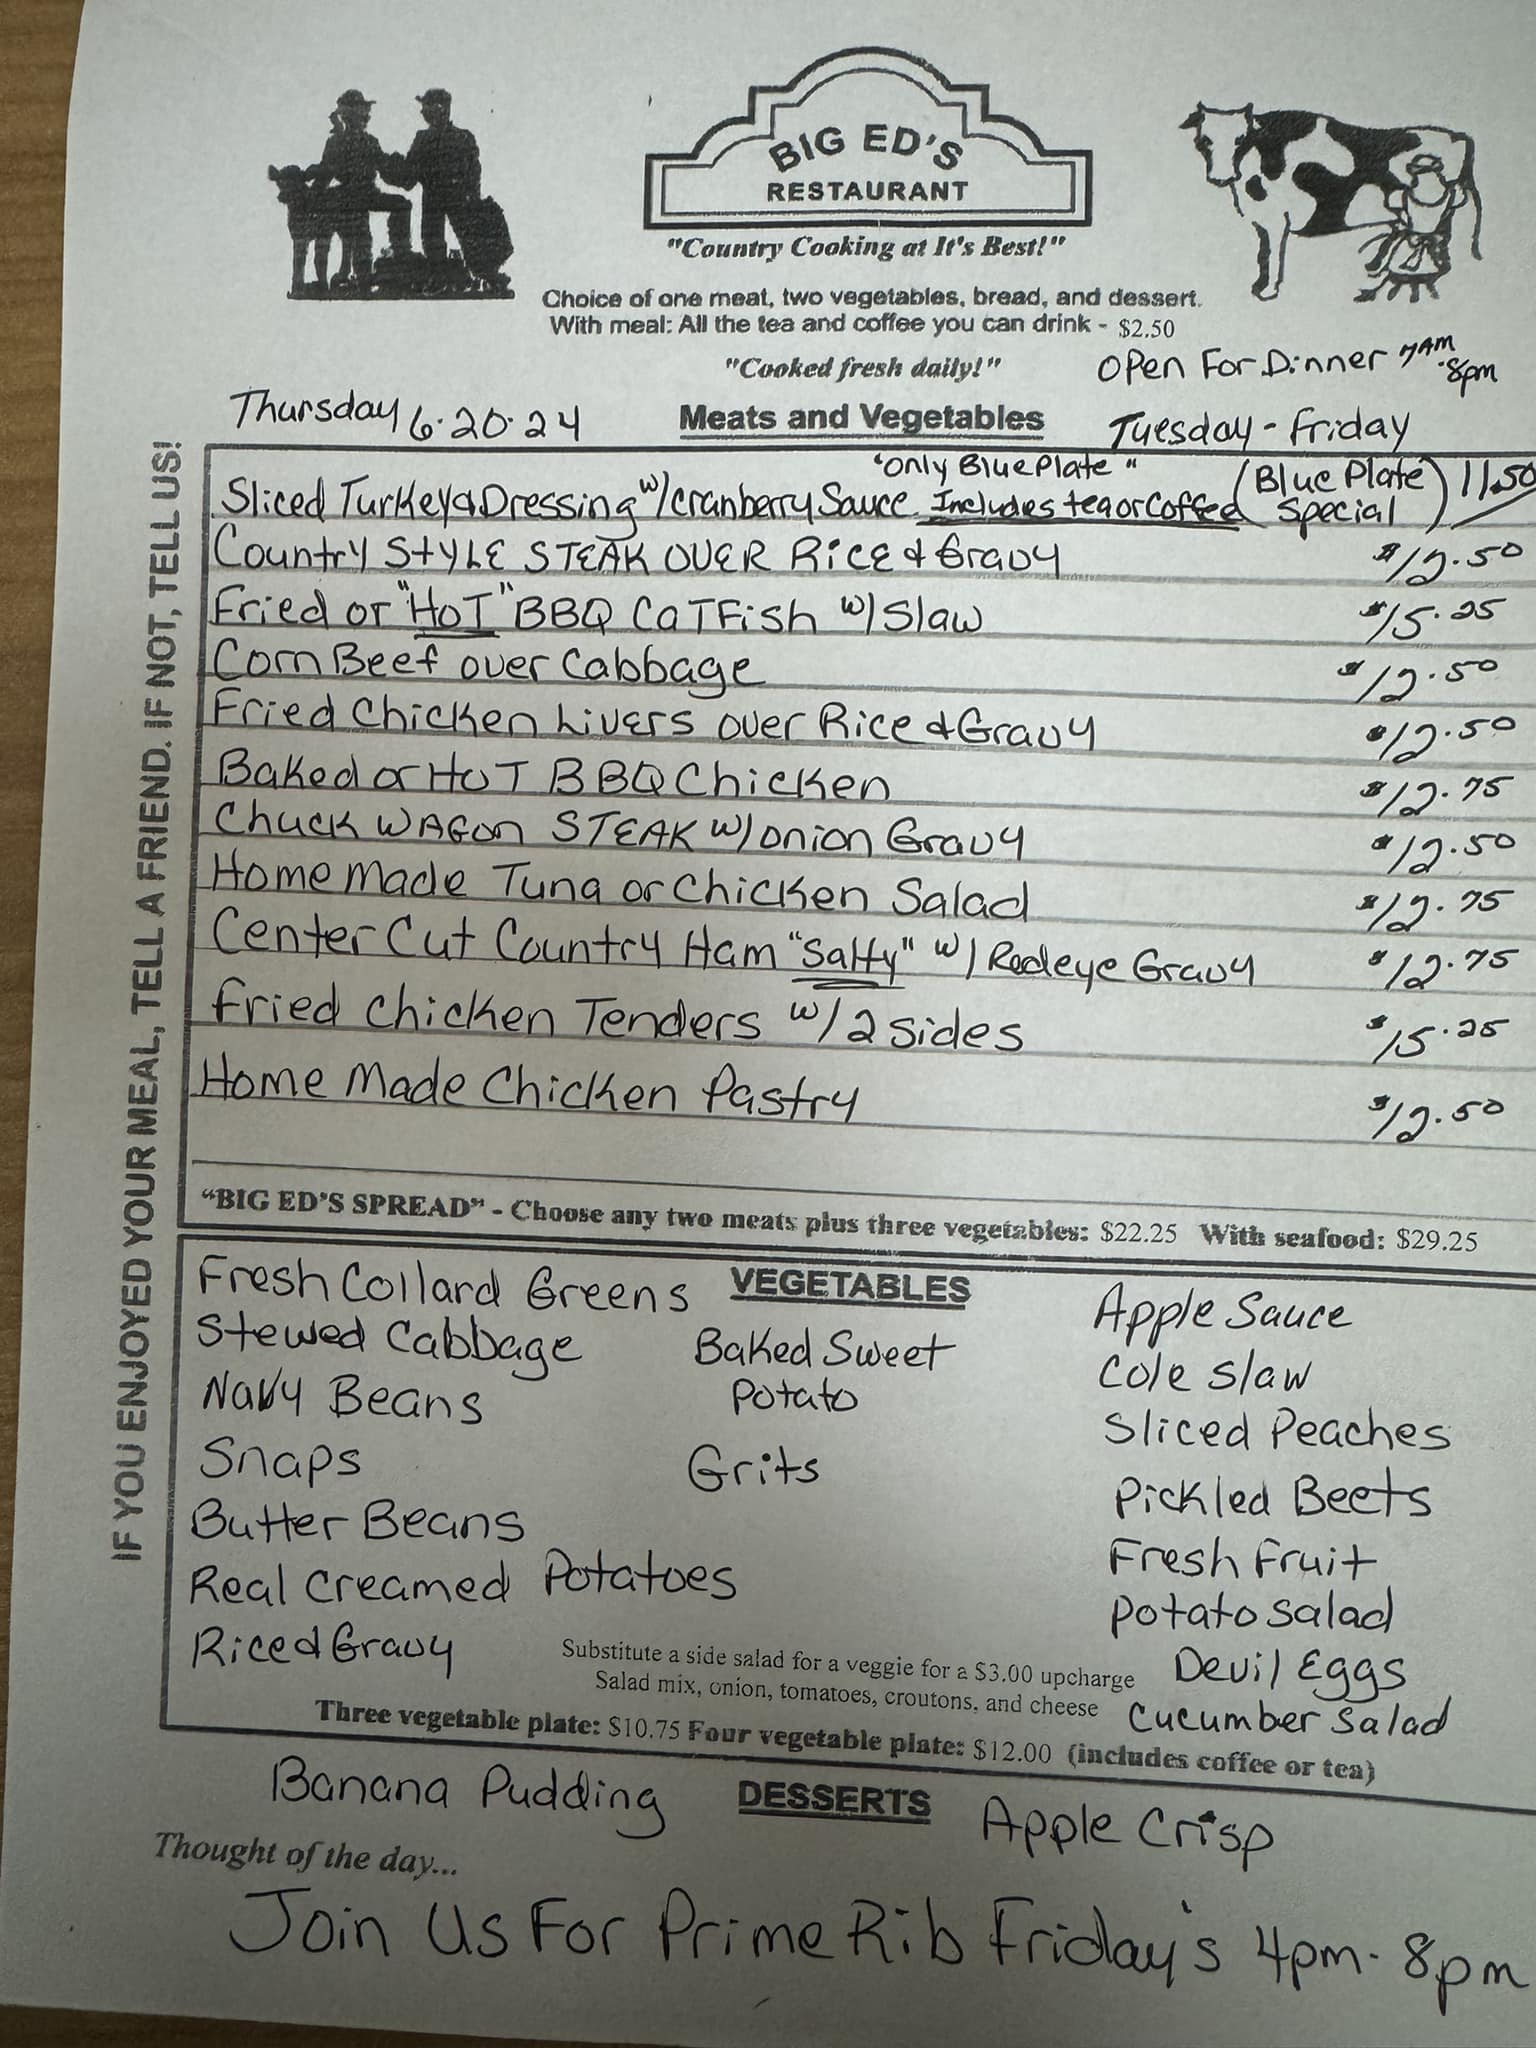 BIG ED'S
RESTAURANT
"Country Cooking at It's Best!"
Choice of one meat, two vegetables, bread, and dessert.
With meal: All the tea and coffee you can drink - $2.50
"Cooked fresh daily!"
Open For Dinner 7AM - 8pm
Thursday 6.20.24
Meats and Vegetables
Tuesday - Friday
IF YOU ENJOYED YOUR MEAL, TELL A FRIEND. IF NOT, TELL US!
"Only Blue Plate"
Sliced Turkey & Dressing w/ cranberry Sauce Includes tea or Coffee (Blue Plate Special) 11.50
Country Style STEAK OVER Rice & Gravy $12.50
Fried or "HoT" BBQ CaTFish w/ Slaw $15.25
Corn Beef over Cabbage $12.50
Fried Chicken Livers over Rice & Gravy $12.50
Baked or HoT BBQ Chicken $12.75
Chuck WAGon STEAK w/ onion Gravy $12.50
Home Made Tuna or Chicken Salad $12.75
Center Cut Country Ham "Salty" w/ Redeye Gravy $12.75
Fried Chicken Tenders w/ 2 sides $15.25
Home Made Chicken Pastry $12.50
"BIG ED'S SPREAD" - Choose any two meats plus three vegetables: $22.25 With seafood: $29.25
VEGETABLES
Fresh Collard Greens
Stewed Cabbage
Navy Beans
Snaps
Butter Beans
Real Creamed Potatoes
Rice & Gravy
Baked Sweet
Potato
Grits
Apple Sauce
Cole Slaw
Sliced Peaches
Pickled Beets
Fresh Fruit
Potato Salad
Devil Eggs
Cucumber Salad
Substitute a side salad for a veggie for a $3.00 upcharge
Salad mix, onion, tomatoes, croutons, and cheese
Three vegetable plate: $10.75 Four vegetable plate: $12.00 (includes coffee or tea)
DESSERTS
Banana Pudding
Apple Crisp
Thought of the day...
Join Us For Prime Rib Friday's 4pm - 8pm